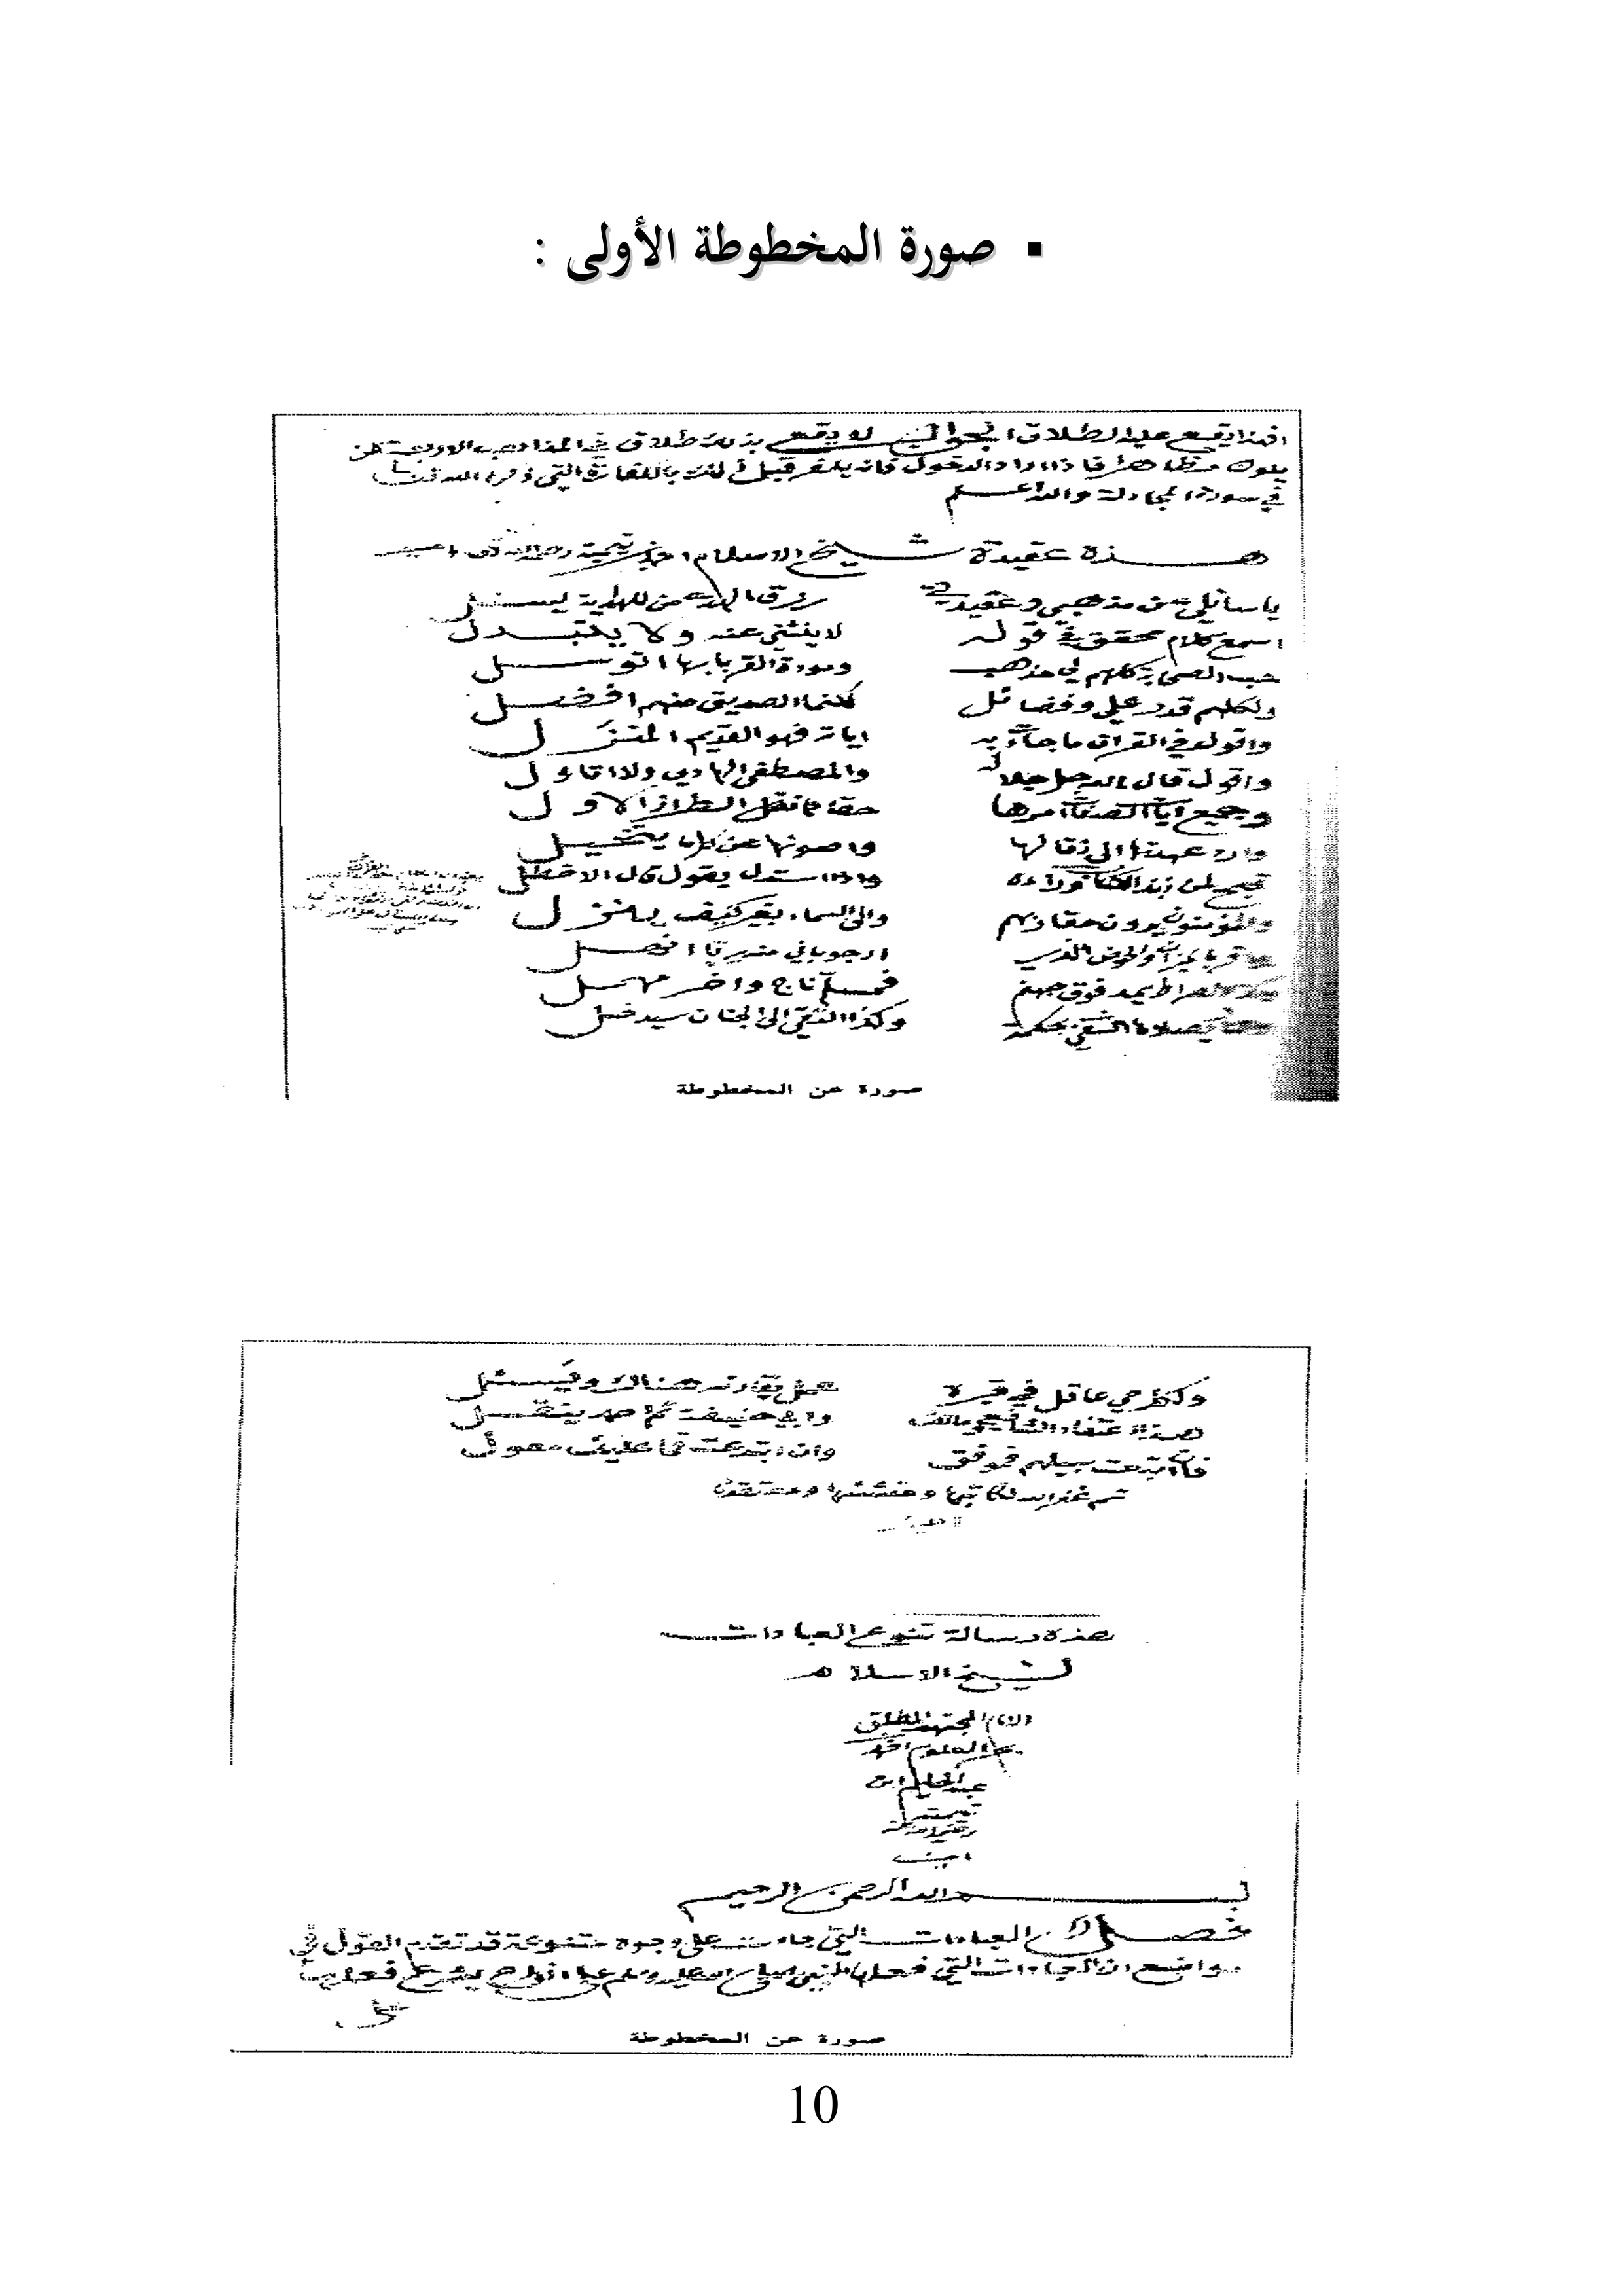 ▪ صورة المخطوطة الأولى :
افهذا يقع عليه الطلاق ام لا الجواب لا يقع بذلك طلاق في المذاهب الاربعة لكن
يكون مظاهرا فاذا اراد الدخول فانه يكفر قبل ذلك بالكفارة التي ذكرها الله تعالى
في سورة المجادلة والله اعلم
هذه عقيدة شيخ الاسلام ابن تيمية رحمه الله تعالى امين
يا سائلي عن مذهبي وعقيدتي رزق الهدى من للهداية يسئل
اسمع كلام محقق في قوله لا ينثني عنه ولا يتبدل
حب الصحابة كلهم لي مذهب ومودة القربا بها اتوسل
ولكلهم قدر علي وفضائل لكنما الصديق منهم افضل
واقول في القران ما جاءت به اياته فهو القديم المنزل
واقول قال الله جل جلاله والمصطفى الهادي ولا اتاول
وجميع ايات الصفات امرها حقا كما نقل الطراز الاول
وارد عهدتها الى نقالها واصونها عن كل ما يتخيل
قبح لمن نبذ الكتاب وراءه واذا استدل يقول قال الاخطل
والمؤمنون يرون حقا ربهم والى السماء بغير كيف ينزل
واقر بالميزان والحوض الذي ارجو باني منه ريا انهل
وكذا الصراط يمد فوق جهنم فمسلم ناج واخر مهمل
والنار يصلاها الشقي بحكمة وكذا التقي الى الجنان سيدخل
صورة عن المخطوطة
ولكل حي عاقل في قبره عمل يقارنه هناك ويسئل
هذا اعتقاد الشافعي ومالك وابي حنيفة ثم احمد ينقل
فان اتبعت سبيلهم فموفق وان ابتدعت فما عليك معول
تم غفر الله لكاتبها ومنشئها ومعتقدها
هذه رسالة تنوع العبادات
لشيخ الاسلام
الامام المجتهد المطلق
احمد
عبد الحليم ابن
تيمية
امين
بسم الله الرحمن الرحيم
فصل في العبادات التي جاءت على وجوه متنوعة قد تقدم القول في
مواضع ان العبادات التي فعلها النبي صلى الله عليه وسلم على انواع يشرع فعلها
على
صورة عن المخطوطة
10